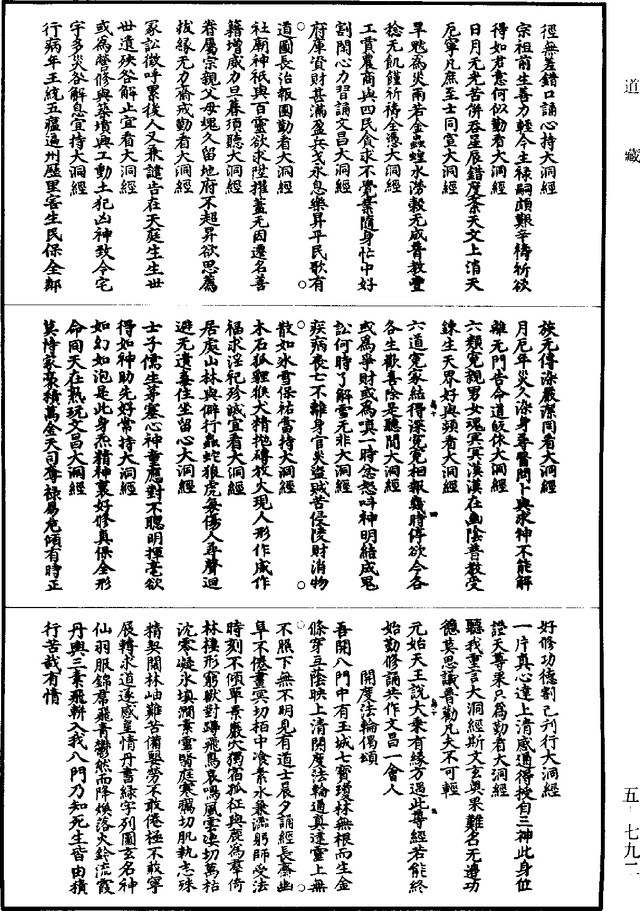 道藏
徑無差錯口誦心持大洞經
宗祖前生善力輕今生祿嗣頗艱辛禱祈欲
得如君意何似勤看大洞經
日月无光苦併吞星辰錯度紊天文上消天
厄寧凡庶至士同宣大洞經
旱魃為災雨若金蟲蝗水澇穀无成普教豐
稔无飢饉祈禱全憑大洞經
工賈農商與四民貪求不覺業隨身忙中好
割閑心力習誦文昌大洞經
府庫資財甚滿盈兵戈永息樂昇平民歌有
道國長治報國勤看大洞經
社廟神祇與百靈欲求陞擢蓋无因遷名善
籍增威力旦暮須聽大洞經
眷屬宗親父母魂久留地府不超昇欲思薦
拔緣无力齋戒勤看大洞經
冢訟徵呼累後人又兼譴告在天庭生生世
世遺殃咎解止宜看大洞經
或為營修與築墳興工動土犯凶神致令宅
宇多災咎解息宜持大洞經
行病年王統五瘟遍州歷里害生民保全鄰
族无傳染嚴潔同看大洞經
月厄年災久染身尋醫問卜與求神不能解
離无門告命道皈依大洞經
六類冤親男女魂冥冥漠漠在幽陰普教受
鍊生天界好與頻看大洞經
六道冤家結得深冤冤相報幾時停欲令各
各生歡喜除是聽聞大洞經
或為爭財或為嗔一時忿怒呌神明結成冤
訟何時了解雪无非大洞經
疾病喪亡不離身官災盜賊苦侵陵財消物
散如冰雪保祐當持大洞經
木石狐狸猴犬精拋磚擲火現人形作威作
福求淫祀珍誠宜看大洞經
居處山林與僻行蟲蛇狼虎每傷人尋聲迴
避无遺毒住坐留心大洞經
士子儒生茅塞心神童應對不聰明揮毫欲
得如神助先好常持大洞經
如幻如泡是此身炁精神裏好修真保全形
命同天在熟玩文昌大洞經
莫恃家豪積萬金天司奪祿易危傾有時正
好修功德割己刋行大洞經
一片真心達上清感通得授自三神此身位
證天尊果只為勤看大洞經
聽我重言大洞經斯文玄奧果難名无邊功
德莫思議普勸凡夫不可輕
元始天王說大乘有緣方遇此尊經若能終
始勤修誦共作文昌一會人
開度法輪偈頌
吾開八門中有玉城七寶瓊林無根而生金
條穿互蔭映上清開度法輪通真達靈上無
不照下無不明見有道士晨夕誦經長齋幽
阜不倦晝冥功柏中食素水兼濡躬師受法
時刻不傾單景巖穴獨宿孤征與鹿為羣倚
林棲形窮獸對蹲飛鳥哀鳴風雲淒切萬祜
沈零凝氷填澗素雪翳庭寒彌切肌執志殊
精契闊林岫難苦備嬰勞不敢倦極不敢寧
展轉求道逐感皇情丹書綠字列圖玄名神
仙羽服錦帬飛青鬱然而降煥落火鈴流霞
丹輿三素飛輧入我八門乃知死生皆由積
行苦哉有情
五‧七九二